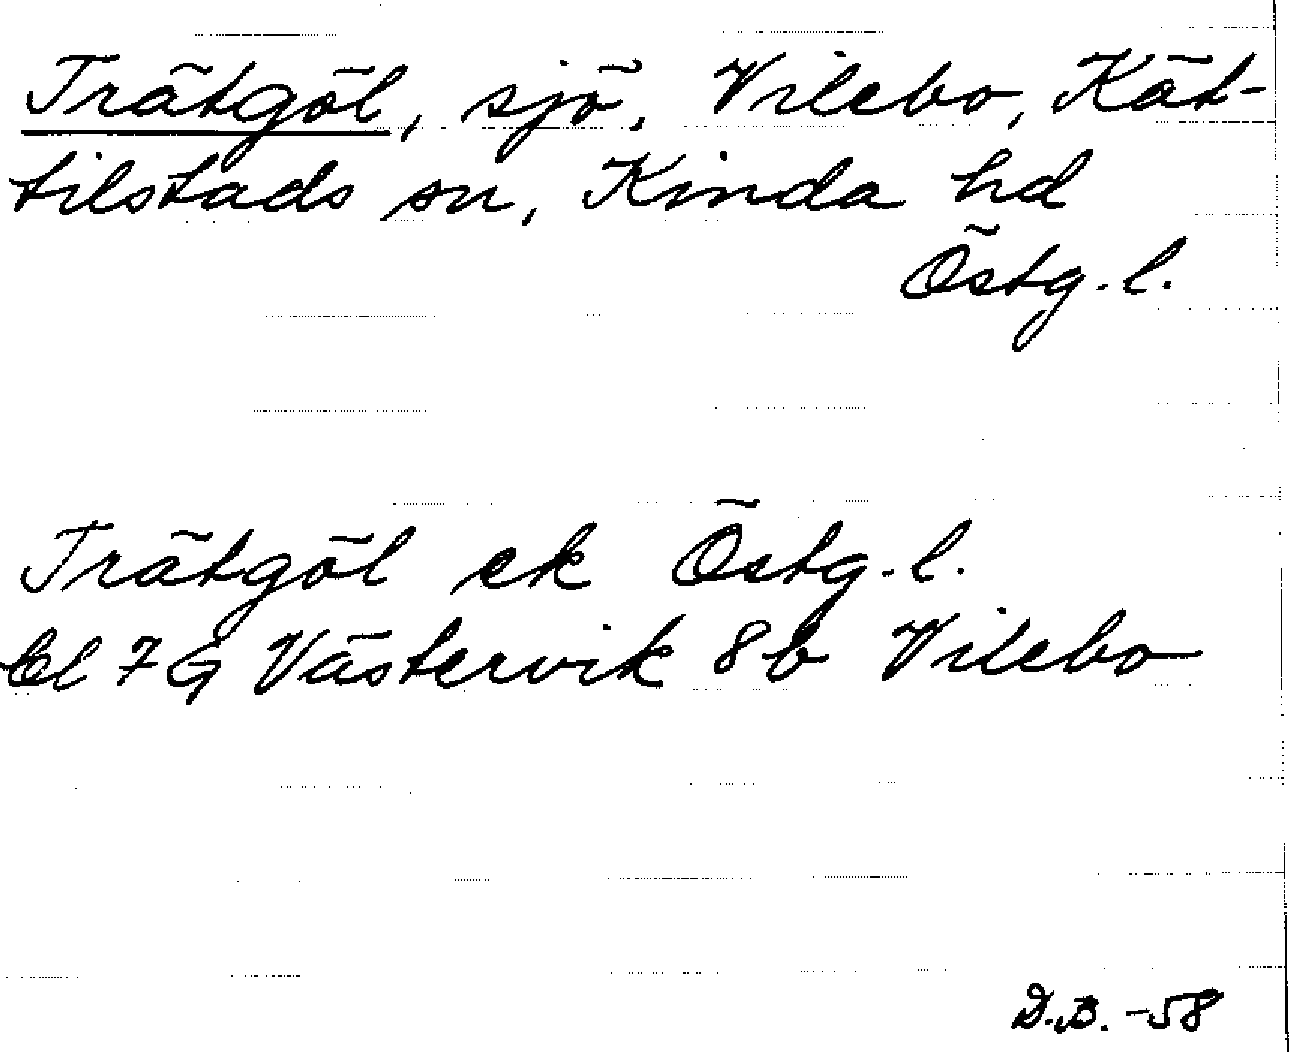 Trätgöl, sjö, Vilebo, Kät-
tilstads sn, Kinda hd
Östg.l.
Trätgöl ek Östg.l.
bl 7G Västervik 8b Vilebo
D.B. -58